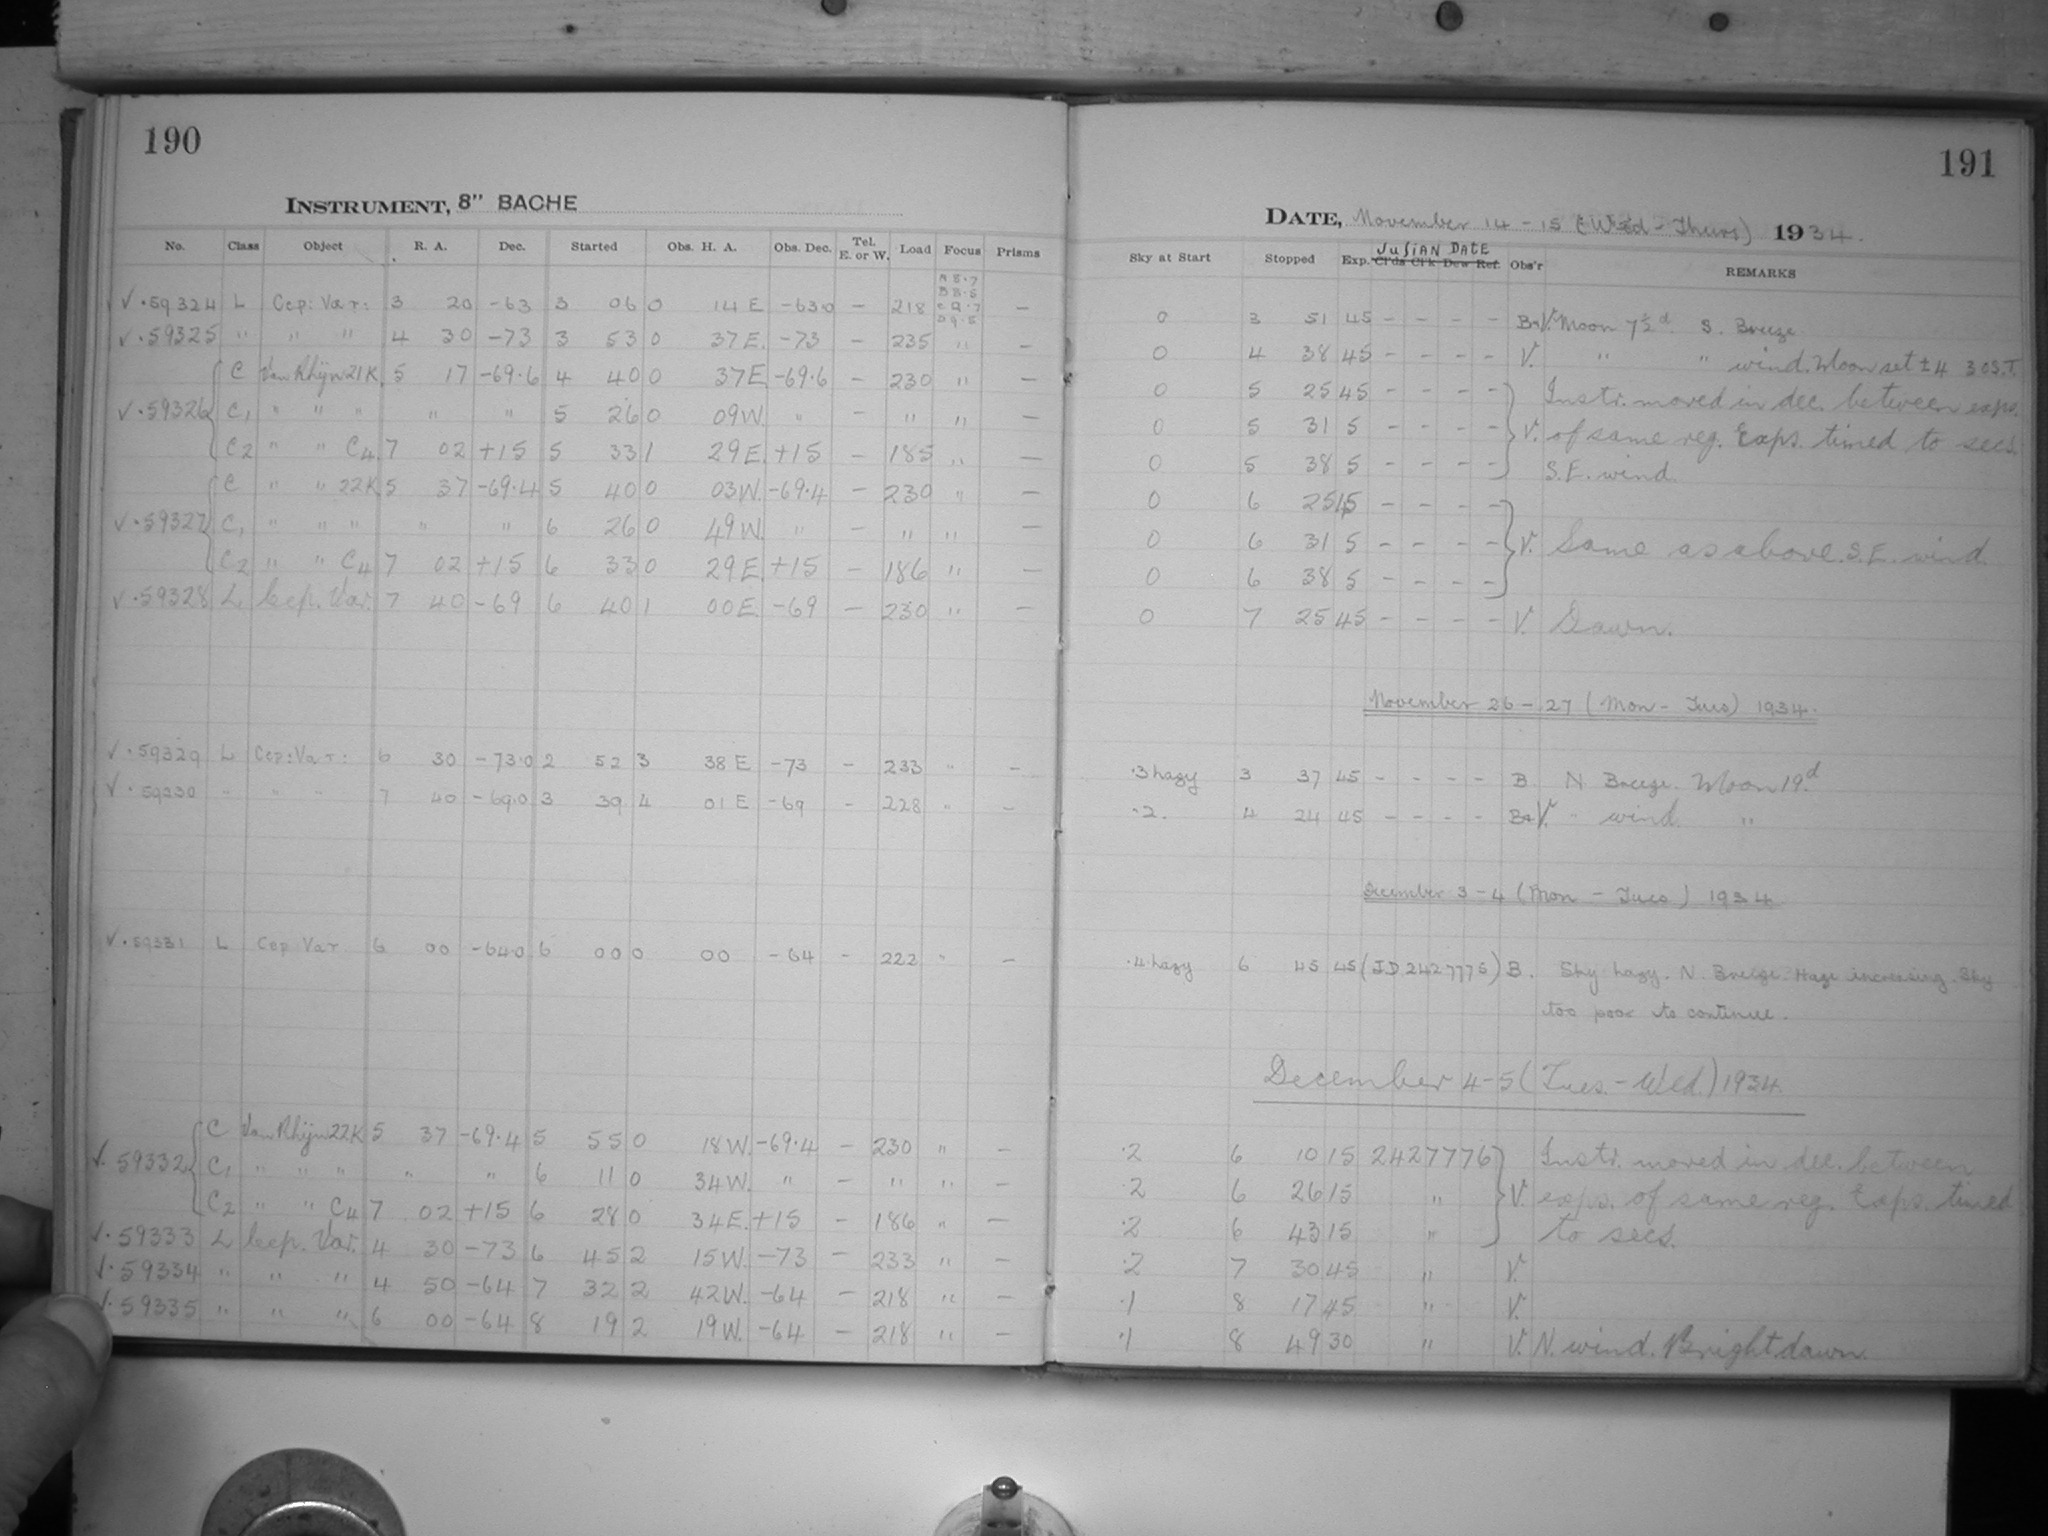 190
INSTRUMENT, 8" BACHE
No. Class Object R. A. Dec. Started Obs. H. A. Obs. Dec. Tel. E. or W. Load Focus Prisms
A 8.7
B 8.5
C 9.7
D 9.5
√ .59324 L Cep: Var: 3 20 -63 3 06 0 14 E -63.0 - 218 -
√ .59325 " " " 4 30 -73 3 53 0 37 E. -73 - 235 " -
C Van Rhijn 21K 5 17 -69.6 4 40 0 37 E -69.6 - 230 " -
√ .59326 C1 " " " " " 5 26 0 09 W. " - " " -
C2 " " C4 7 02 +15 5 33 1 29 E. +15 - 185 " -
C " " 22K 5 37 -69.4 5 40 0 03 W. -69.4 - 230 " -
√ .59327 C1 " " " " " 6 26 0 49 W. " - " " -
C2 " " C4 7 02 +15 6 33 0 29 E +15 - 186 " -
√ .59328 L Cep. Var. 7 40 -69 6 40 1 00 E. -69 - 230 " -
√ .59329 L Cep: Var: 6 30 -73.0 2 52 3 38 E -73 - 233 " -
√ .59330 " " " 7 40 -69.0 3 39 4 01 E -69 - 228 " -
√ .59331 L Cep Var 6 00 -64.0 6 00 0 00 -64 - 222 " -
C Van Rhijn 22K 5 37 -69.4 5 55 0 18 W. -69.4 - 230 " -
√. 59332 C1 " " " " " 6 11 0 34 W. " - " " -
C2 " " C4 7 02 +15 6 28 0 34 E. +15 - 186 " -
√. 59333 L Cep. Var. 4 30 -73 6 45 2 15 W. -73 - 233 " -
√. 59334 " " " 4 50 -64 7 32 2 42 W. -64 - 218 " -
√. 59335 " " " 6 00 -64 8 19 2 19 W. -64 - 218 " -
191
DATE, November 14 - 15 (Wed - Thurs) 1934.
JULIAN DATE
Sky at Start Stopped Exp. Cl'ds Cl'k Dew Ref. Obs'r REMARKS
0 3 51 45 - - - - Moon 7½d S. Breeze
0 4 38 45 - - - - V. " " wind. Moon set ± 4 30 S.T.
0 5 25 45 - - - - Instr. moved in dec. between exps.
0 5 31 5 - - - - V. of same reg. Exps. timed to secs.
0 5 38 5 - - - - S.E. wind.
0 6 25 45 - - - -
0 6 31 5 - - - - V. Same as above. S.E. wind.
0 6 38 5 - - - -
0 7 25 45 - - - - V. Dawn.
November 26 - 27 (Mon - Tues) 1934.
.3 hazy 3 37 45 - - - - B N Breeze. Moon 19d.
.2. 4 24 45 - - - - V. " wind. "
December 3 - 4 (Mon - Tues) 1934
.4 hazy 6 45 45 (JD 2427775) B. Sky hazy. N. Breeze. Haze increasing. Sky
too poor to continue.
December 4-5 (Tues. - Wed.) 1934.
.2 6 10 15 2427776 Instr. moved in dec. between
.2 6 26 15 " V. exps. of same reg. Exps. timed
.2 6 43 15 " to secs.
.2 7 30 45 " V.
.1 8 17 45 " V.
.1 8 49 30 " V. N. wind. Bright dawn.